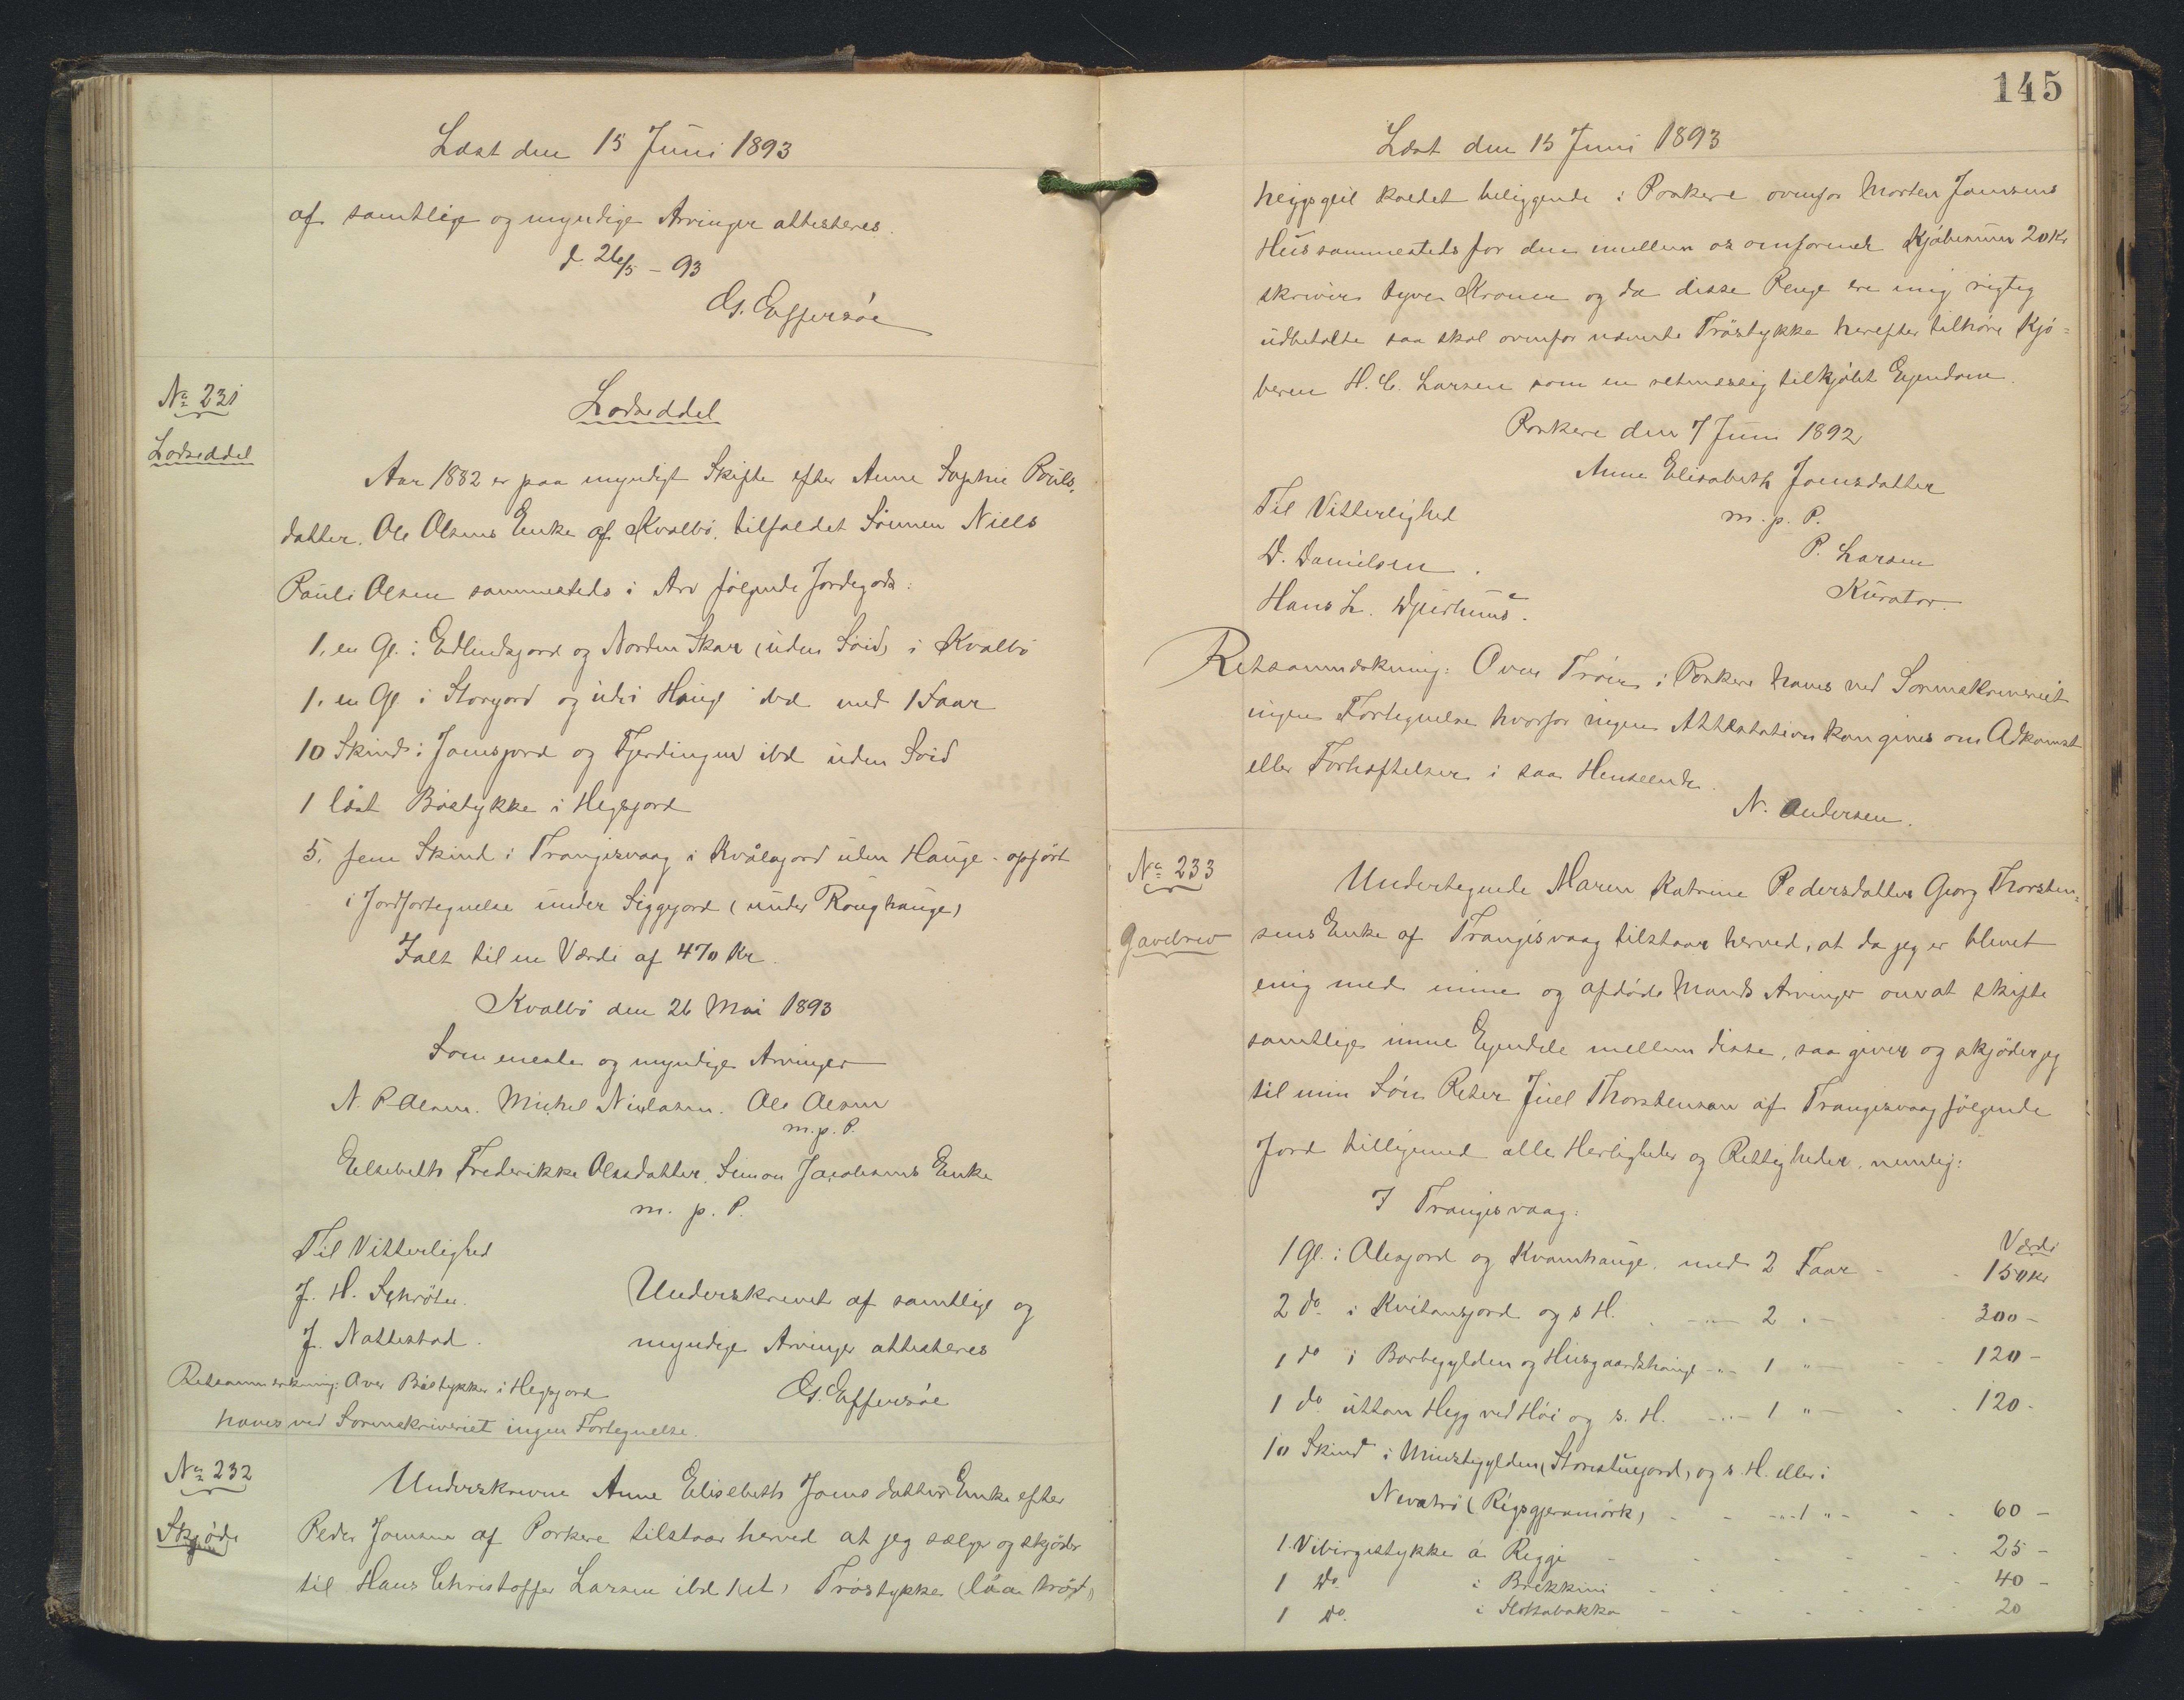 Læst den 15 Juni 1893
af samtlige og myndige Arvinger attesteres.
d. 26/5 - 93
G. Effersøe
No 231
Lodseddel
Lodseddel
Aar 1882 er paa myndigt Skifte efter Anne Sophie Pouls-
datter, Ole Olsens Enke af Kvalbø, tilfaldet Sønnen Niels
Pauli Olsen sammesteds i Arv følgende Jordegods:
1, en Gl. i Edlendsgjord og Norden Skar (uden Söid) i Kvalbø
1, en Gl i Storgjord og udi Haug ibd med 1 Faar
10 Skind i Jomsjord og Fjerdingen ibd uden Söid
1 løst Bøstykke i Hegsjord
5, fem Skind i Trangisvaag i Kvålagjord uden Hauge - opført
i Jordfortegnelse under Siggjord (under Rönghauge)
Ialt til en Værdi af 470 Kr.
Kvalbø den 26 Mai 1893
Som eneste og myndige Arvinger
N. P. Olsen. Michel Niclasen. Ole Olsen
m. p. P.
Elsebeth Frederikke Olesdatter, Simon Jacobsens Enke
m. p. P.
Til Vitterlighed
J. H. Schröter.
J. Nattestad.
Underskrevet af samtlige og
myndige Arvinger attesteres
G. Effersøe
Retsanmærkning: Over Bøstykker i Hegsjord
haves ved Sorenskriveriet ingen Fortegnelse.
No 232
Skjøde
Underskrevne Anne Elisebeth Joensdatter Enke efter
Peder Joensen af Porkere tilstaar herved at jeg sælger og skjøder
til Hans Christoffer Larsen ibd 1 (et) Trøstykke (låa trøst)
145
Læst den 15 Juni 1893
heggsgeil kaldet beliggende i Porkere ovenfor Morten Joensens
Hus sammesteds for den imellem os omforenede Kjøbesum 20 Kr
skriver tyve Kroner og da disse Penge ere mig rigtig
udbetalte saa skal ovenfor nævnte Trøstykke herefter tilhøre Kjø=
beren H. C. Larsen som en retmæssig tilkjøbt Ejendom.
Porkere den 7 Juni 1892
Anne Elisabeth Joensdatter
m. p. P.
Til Vitterlighed
D. Danielsen.
P. Larsen
Kurator.
Hans L. Djurhuus.
Retsanmærkning: Over Trøer i Porkere haves ved Sorenskriveriet
ingen Fortegnelse hvorfor ingen Attestation kan gives om Adkomst
eller Forhæftelser i saa Henseende.
N. Andersen.
No 233
Gavebrev
Undertegnede Maren Katrine Pedersdatter Georg Thorsten-
sens Enke af Trangisvaag tilstaar herved, at da jeg er blevet
enig med mine og afdøde Mands Arvinger om at skifte
samtlige mine Ejendele mellem disse, saa giver og skjøder jeg
til min Søn Peter Juel Thorstensen af Trangisvaag følgende
Jord tilligemed alle Herligheder og Rettigheder, nemlig:
I Trangisvaag:
Værdi
1 Gl. i Olesjord og Kvamhauge, med 2 Faar - - 150 Kr
2 do i Kvitansjord og s H. - " - 2 " - 300 -
1 do i Barbegylden og Husgaardshauge - " - 1 " - - 120 -
1 do uttan Hegg ved Hői og s. H. - " - 1 " - - 120 -
10 Skind i Minstegylden (Storestuejord) og s. H. eller i
Nevatrö (Rigsgjeramörk) - - - " - 1 " - - - 60 -
1 Vibirgistykke á Riggi - - - - - 25 -
1 do. i Brekkuni - - - - - 40 -
1 do. i Hottabakka - - - - - 20